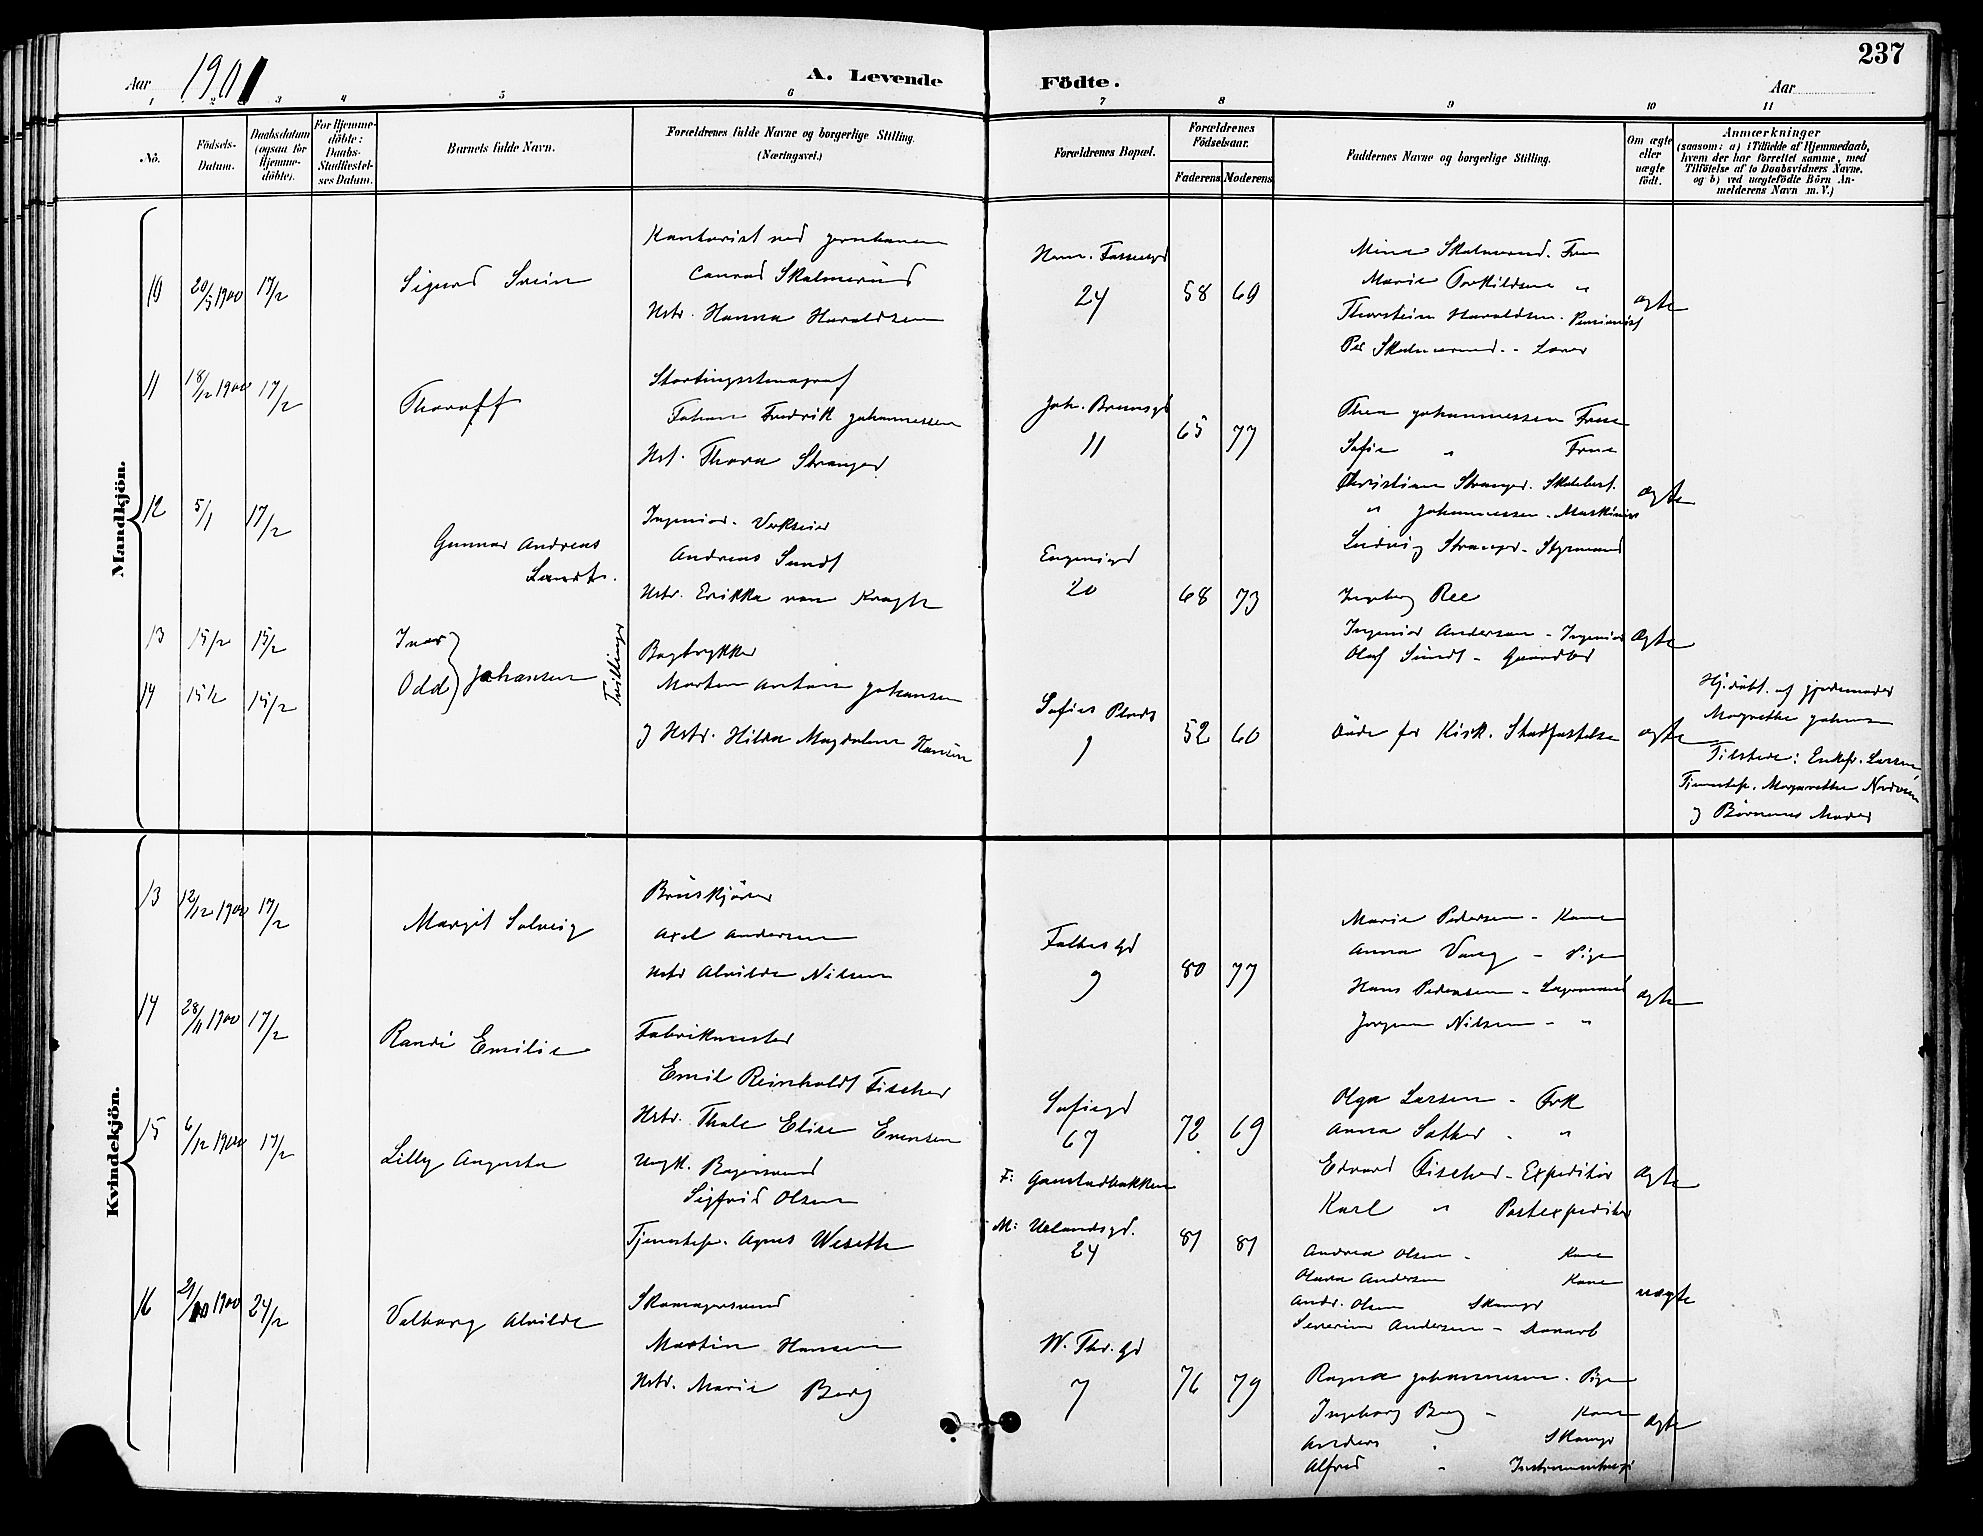 237
Aar 1901
A. Levende Födte.
Aar
1 2 3 4 5 6 7 8 9 10 11
Nö.
Födsels-Datum.
Daabsdatum (ogsaa for Hjemme-döbte).
For Hjemme-döbte: Daabs-Stadfæstel-ses Datum.
Barnets fulde Navn.
Forældrenes fulde Navne og borgerlige Stilling. (Næringsvei.)
Forældrenes Bopæl.
Forældrenes Födselsaar.
Faderens Moderens
Faddernes Navne og borgerlige Stilling.
Om ægte eller uægte födt.
Anmærkninger (saasom: a) i Tilfælde af Hjemmedaab, hvem der har forrettet samme, med Tilföielse af to Daabsvidners Navne. og b) ved uægtefödte Börn An-melderens Navn m. V.)
Mandkjön.
10 20/5 1900 17/2
Sigurd Svein
Kontorist ved jernbanen
Conrad Skalmerud
Hstr. Hanna Haraldsen
24
58 69
Skalmerud. Frue
Marie Torkildsen "
Thorstein Haraldsen. Pensionist
Per Skalmerud
ægte
11 18/12 1900 17/2
Thoralf
Stortingsstenograf
Johan Fredrik Johannessen
Hst. Thora Stranger
Joh. Brunsgd
11
65 77
Thea Johannessen Frue
Sofie " Frue
Christian Stranger. Skibsbest.
" Johannessen. Maskinist
Ludvig Stranger. Styrmand
ægte
12 5/1 17/2
Gunnar Andreas
Sundt.
Ingeniør. Verkseier
Andreas Sundt
Hstr. Erikka von Kragh
Eugeniegd
20
68 73
Ingeborg Ree
Ingeniør Andersen - Ingeniør
Olaf Sundt - Gaardbr
ægte
13 15/2 15/2
Ivar
Odd } Johansen
Tvillinger
14 15/2 15/2
Bogtrykker
Morten Anton Johansen
og Hstr. Hilda Magdalene Hansen
Sofies Plads
1
52 60
Døde før Kirk. Stadfæstelse
ægte
Hj.døbt. af jordemoder
Margrethe Johnsen
Tilstede: Enkefr. Larsen
Tjenestep. Margarethe
og Børnenes Moder
Kvindekjön.
13 12/12 1900 17/2
Margit Solveig
Bruskjører
Axel Andersen
Hstr Alvilde Nilsen
Falbesgd
9
80 77
Marie Pedersen - Kone
Anna - Pige
Hans Pedersen - Lagermand
Jørgen Nilsen - "
ægte
14 28/11 1900 17/2
Randi Emilie
Fabrikmester
Emil Reinholdt Fischer
Hstr. Thale Elise Evensen
Sofiegd
67
72 69
Olga Larsen - Frk
Anna Sother. "
Edvard Fischer - Expeditør
Karl " Postexpeditør
ægte
15 6/12 1900 17/2
Lilly Augusta
Ungk. Bagersvend
Sigfrid Olsen
Tjenestep. Agnes Weseth
F: Gaustadbakken
M: Uelandsgd.
24
81 81
Andrea Olsen - Kone
Olava Andersen Kone
Andr. Olsen Skomgr
Severin Andersen -
uægte
16 21/10 1900 24/2
Valborg Alvilde
Skomagersvend
Martin Hansen
Hstr. Marie Berg
W. Thr. gd
7
76 79
Ragna Johannesen. Pige
Ingeborg Berg - Kone
Anders " Skomgr
Alfred "
ægte